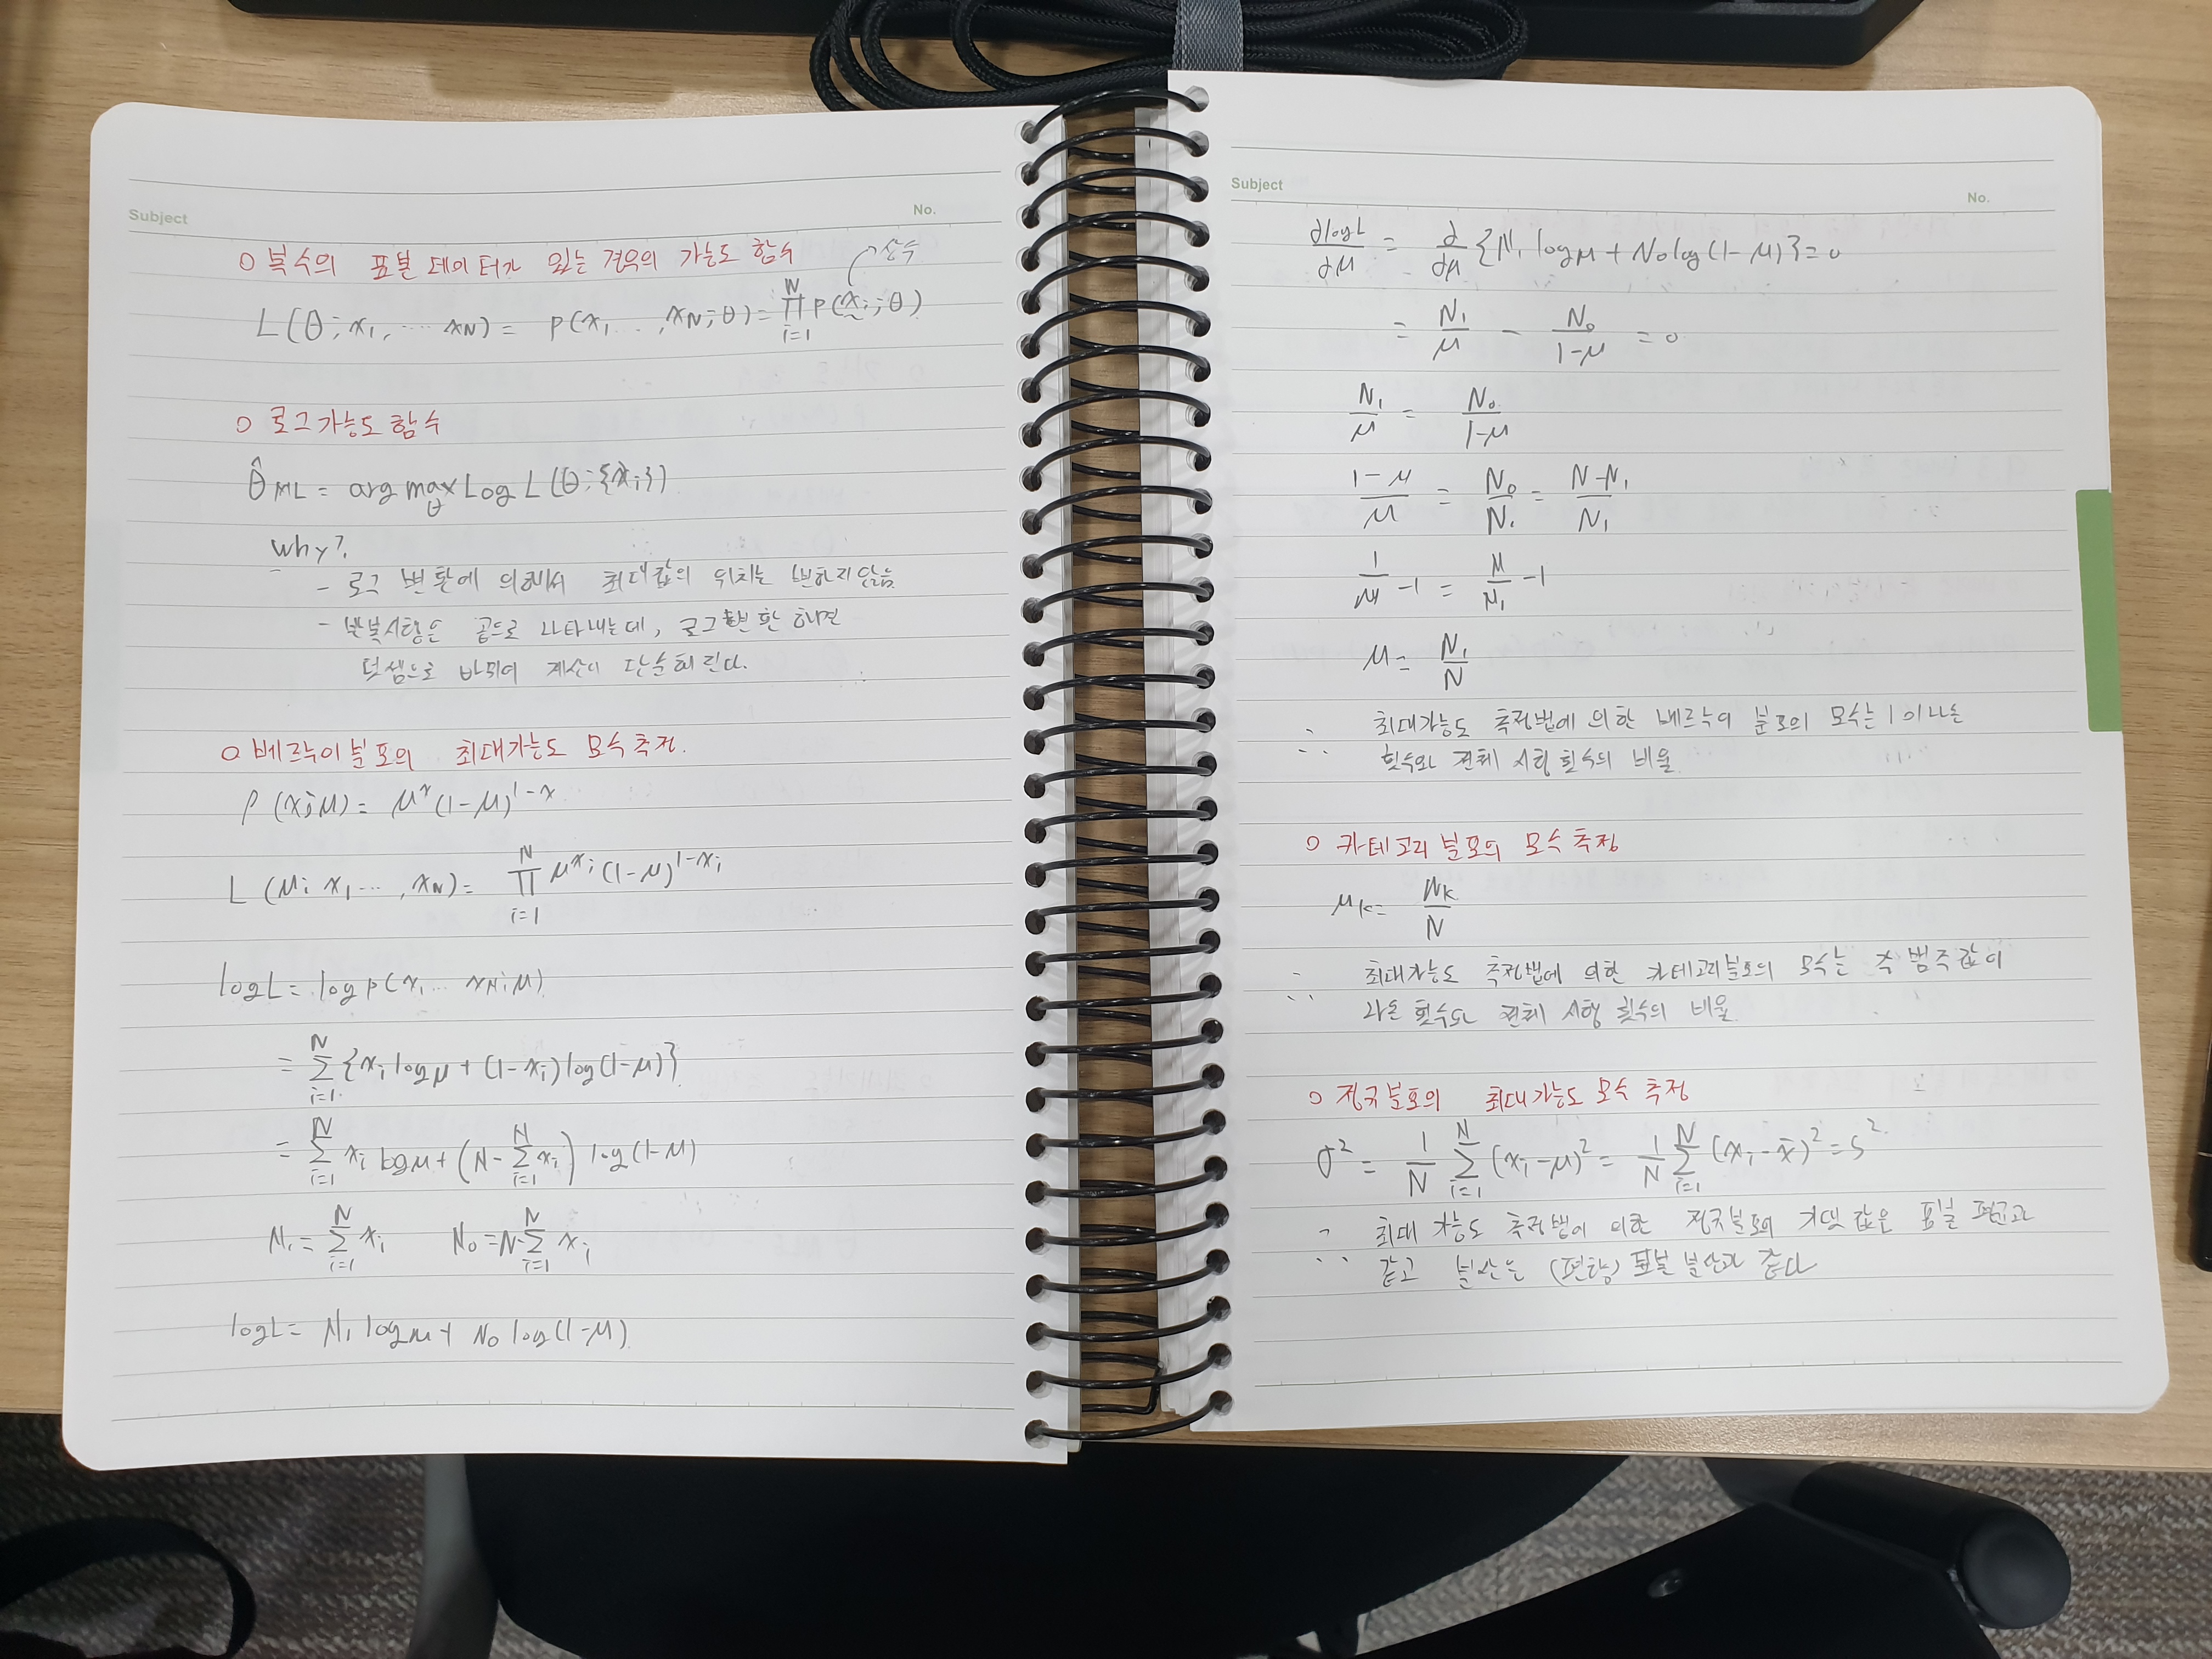 Subject
No.
○ 복수의 표본 데이터가 있는 경우의 가능도 함수
상수
L(θ; x₁, ⋯ x_N) = p(x₁ ⋯, x_N; θ) = ∏_{i=1}^{N} p(x_i; θ)
○ 로그가능도 함수
θ̂_ML = arg max_θ Log L(θ; {x_i})
why?
- 로그 변환에 의해서 최대값의 위치는 변하지 않음
- 반복시행은 곱으로 나타내는데, 로그변환 하면
덧셈으로 바뀌어 계산이 단순해 린다.
○ 베르누이분포의 최대가능도 모수 추정.
P(x; μ) = μ^x (1-μ)^{1-x}
L(μ; x₁ ⋯, x_N) = ∏_{i=1}^{N} μ^{x_i} (1-μ)^{1-x_i}
logL = log p(x₁ ⋯ x_N; μ)
= ∑_{i=1}^{N} {x_i log μ + (1-x_i) log(1-μ)}
= ∑_{i=1}^{N} x_i log μ + (N - ∑_{i=1}^{N} x_i) log(1-μ)
N₁ = ∑_{i=1}^{N} x_i N₀ = N-∑_{i=1}^{N} x_i
logL = N₁ log μ + N₀ log(1-μ)
Subject
No.
∂logL/∂μ = ∂/∂μ {N₁ log μ + N₀ log(1-μ)} = 0
= N₁/μ - N₀/(1-μ) = 0
N₁/μ = N₀/(1-μ)
(1-μ)/μ = N₀/N₁ = (N-N₁)/N₁
1/μ - 1 = N/N₁ - 1
μ = N₁/N
∴ 최대가능도 추정법에 의한 베르누이 분포의 모수는 1이 나온
횟수와 전체 시행 횟수의 비율
○ 카테고리분포의 모수 추정
μ_k = N_k/N
∴ 최대가능도 추정법에 의한 카테고리분포의 모수는 각 범주값이
나온 횟수와 전체 시행 횟수의 비율.
○ 정규분포의 최대가능도 모수 추정
σ² = 1/N ∑_{i=1}^{N} (x_i-μ)² = 1/N ∑_{i=1}^{N} (x_i-x̄)² = s²
∴ 최대 가능도 추정법에 의한 정규분포의 기댓값은 표본 평균과
같고 분산은 (편향) 표본 분산과 같다